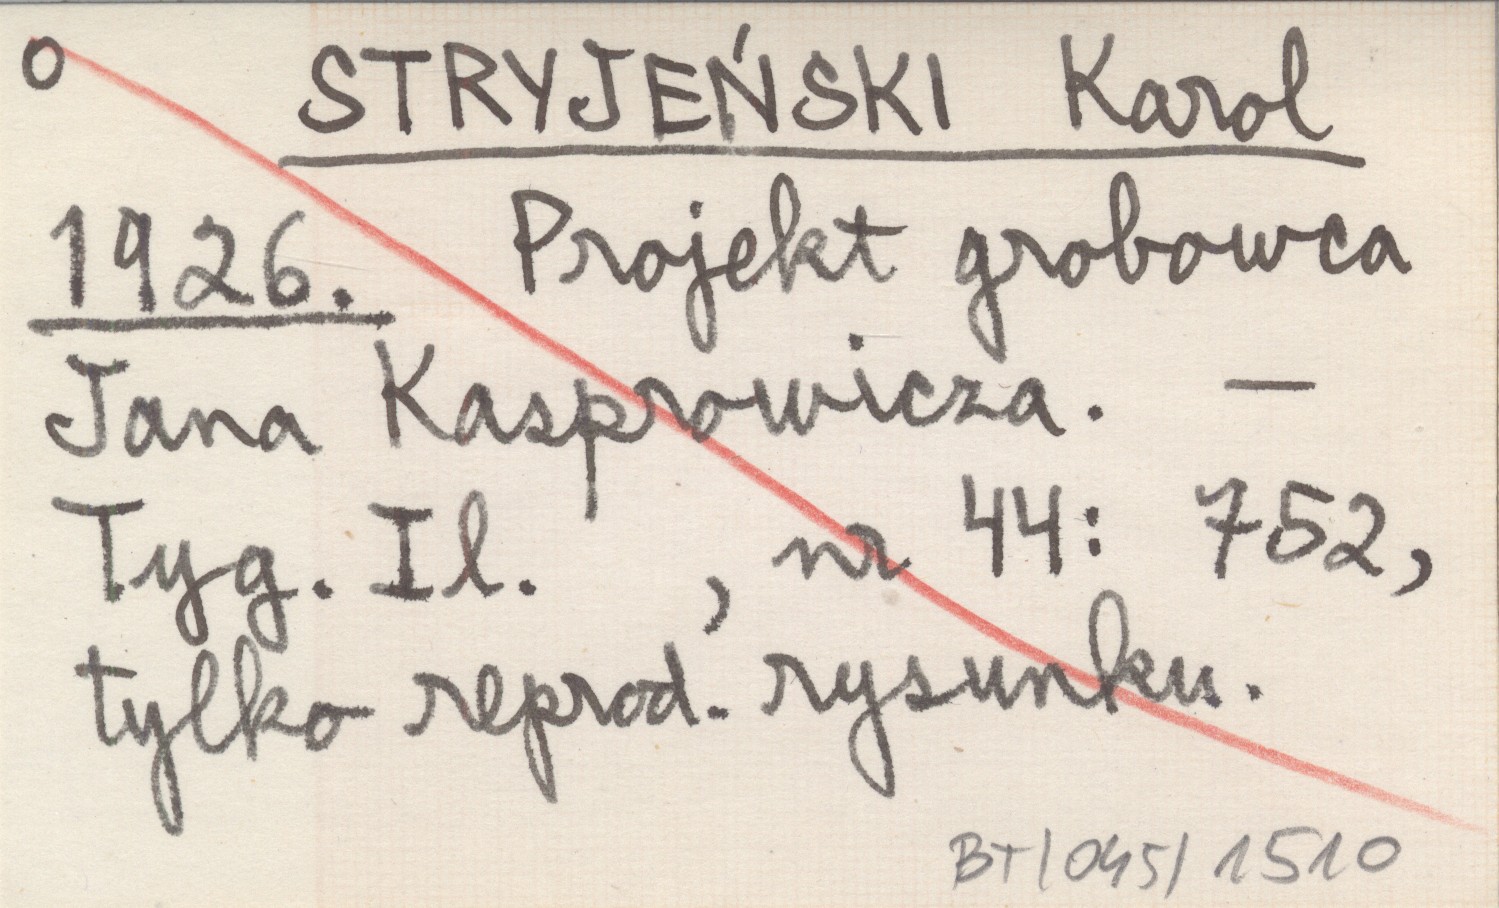 O STRYJEŃSKI Karol
1926. Projekt grobowca
Jana Kasprowicza. —
Tyg. Il. , nr 44: 752,
tylko reprod. rysunku.
BT/045/1510